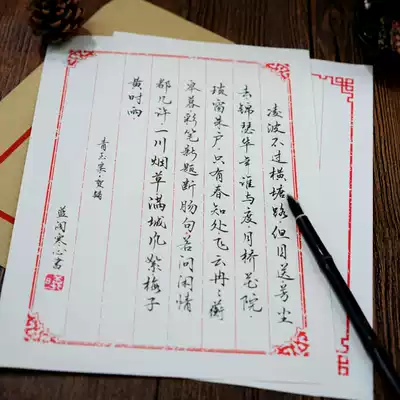 凌波不过横塘路·但目送芳尘
去锦瑟华年谁与度·月桥花院·
琐窗朱户·只有春知处飞云冉々蘅
皋暮·彩笔新题断肠句·若问闲情
都几许一川烟草满城风絮梅子
黄时雨
青玉案·贺铸
寒心书